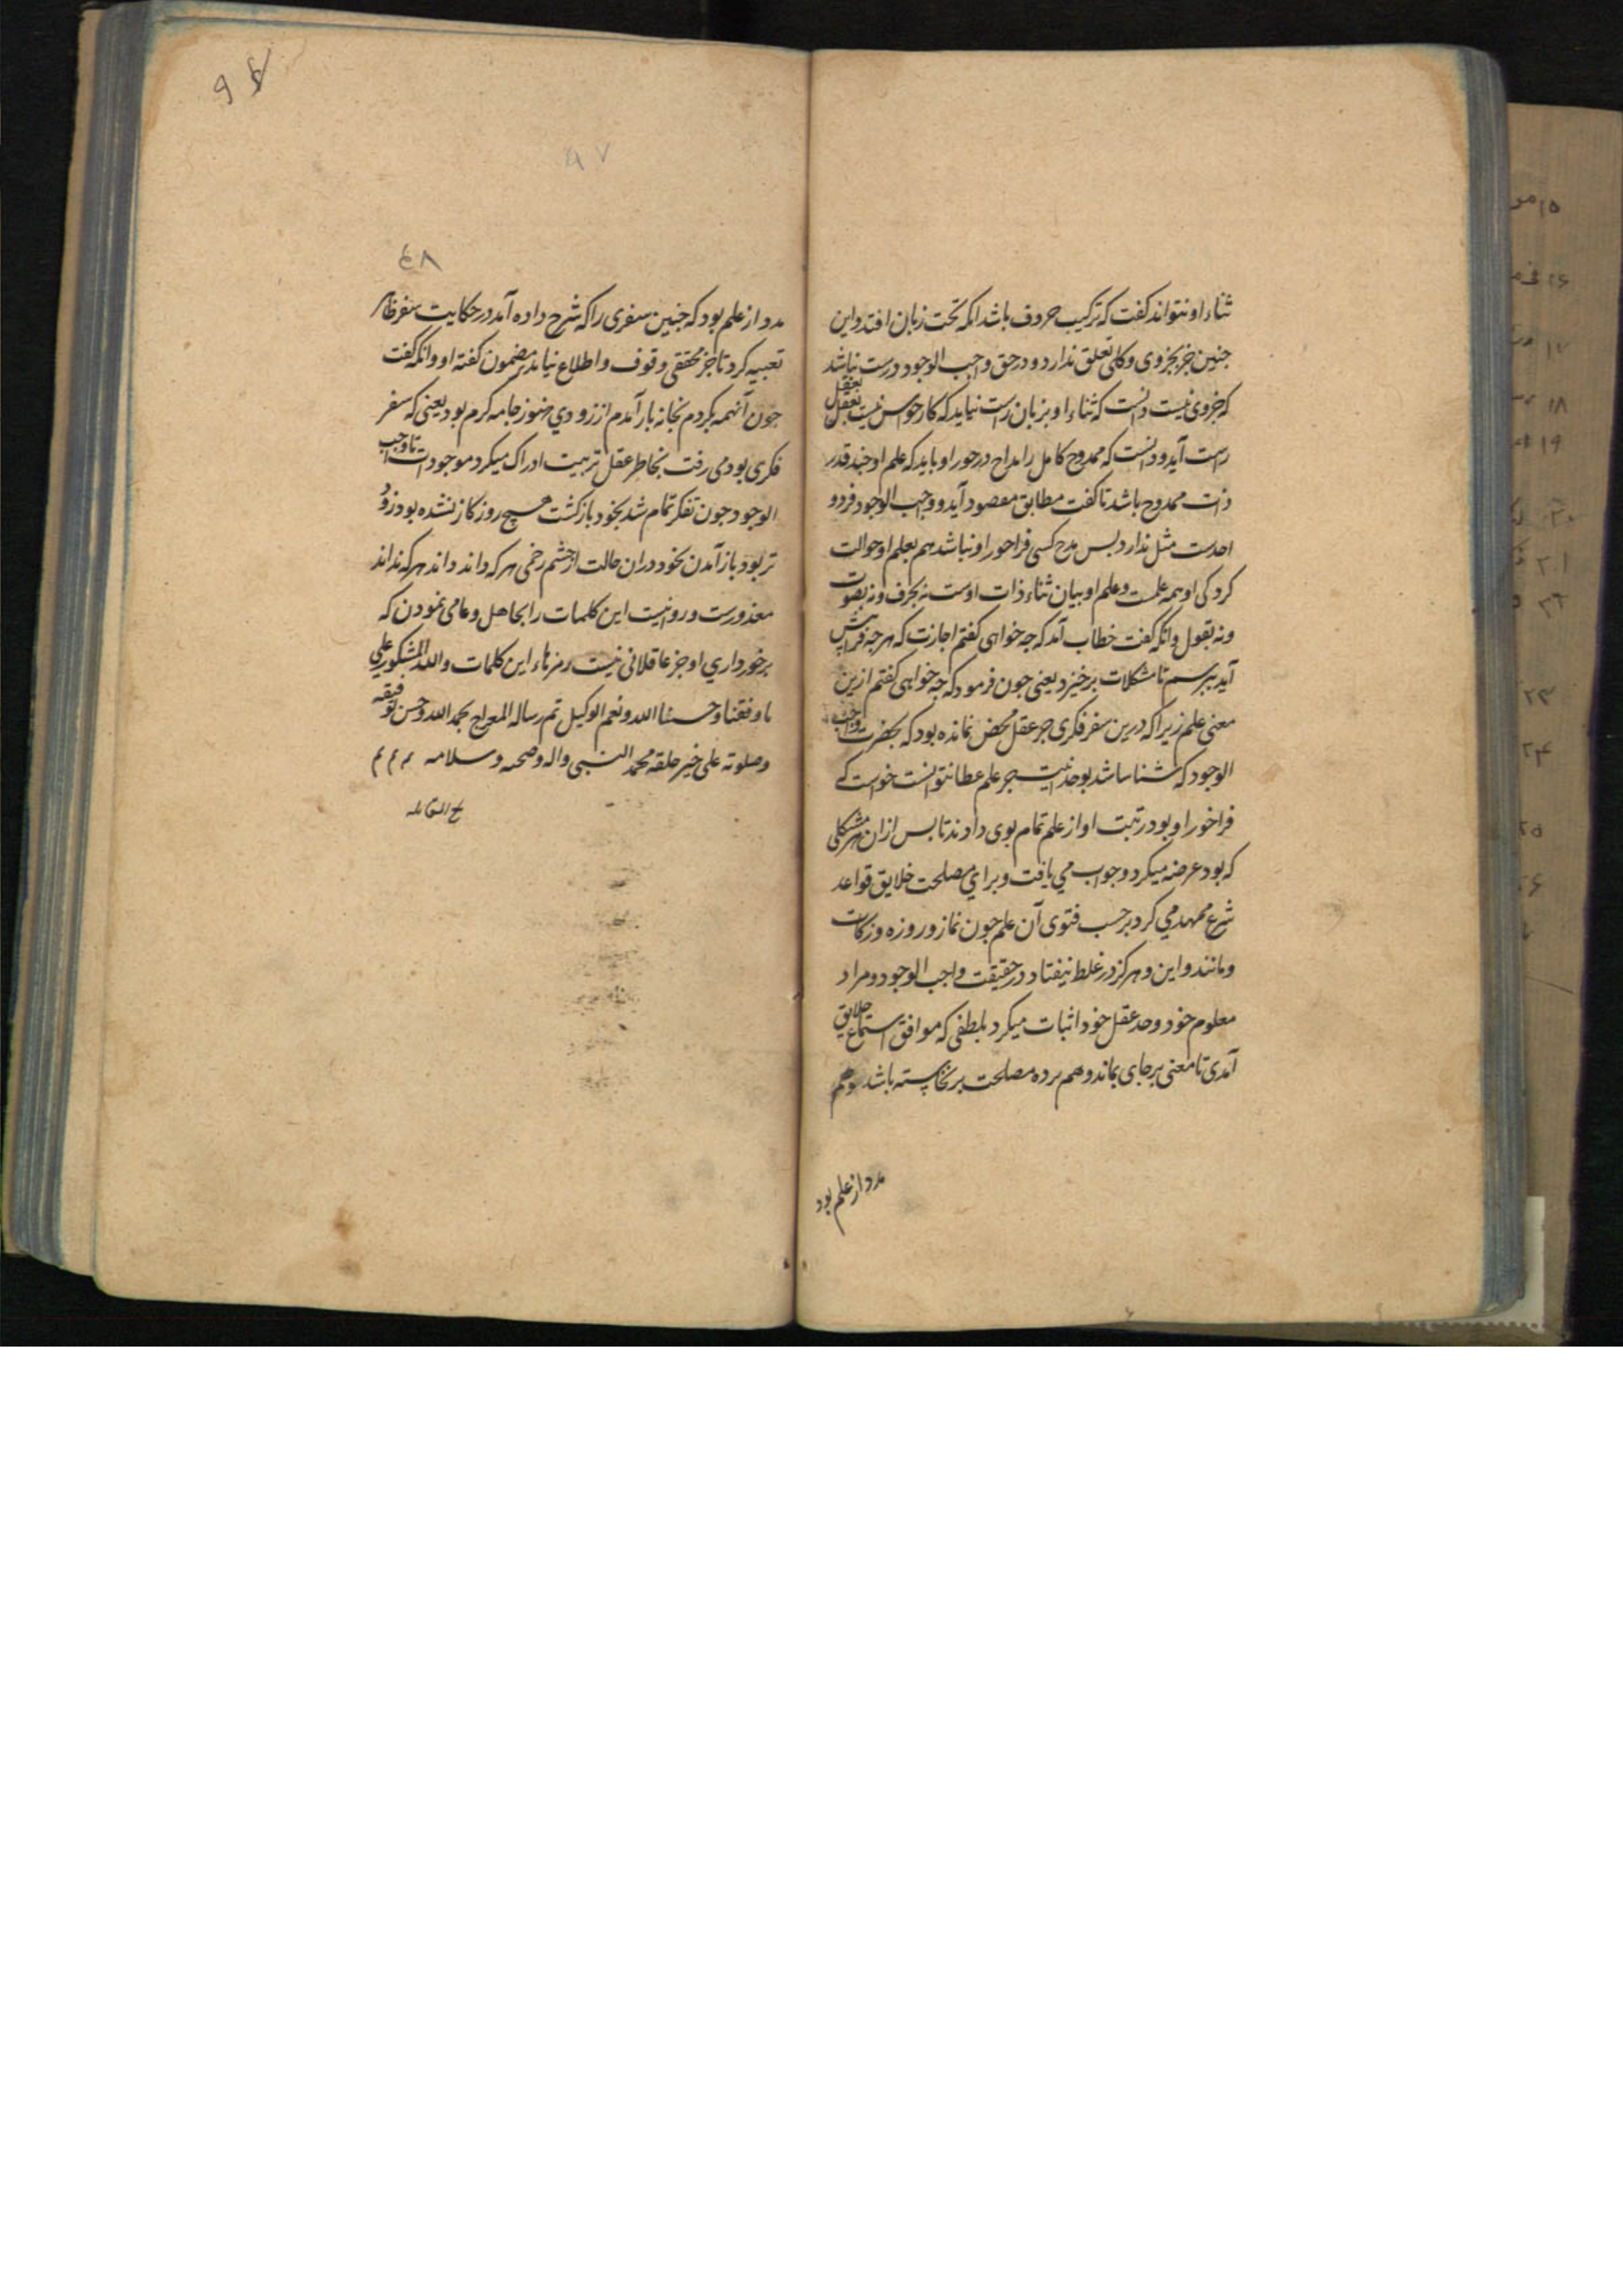 ثناء او نتواند گفت که ترکیب حروف باشد انکه تحت زبان افتد و این
جنین جز بجزوی و کلی تعلق ندارد و در حق واجب الوجود درست نباشد
که جزوی نیست دانست که ثناء او بزبان راست نیاید که کار حواس نیست بعقل
بعقل
راست آید و دانست که ممدوح کامل را مداح در خور او باید که علم او جند قدر
ذات ممدوح باشد تا گفت مطابق مقصود آید و واجب الوجود فرد و
احدست مثل ندارد بس مدح کسی فراخور او نباشد هم بعلم او حوالت
کرد کی او همه علمست و علم او بیان ثناء ذات اوست نه بحرف و نه بصوت
ونه بقول و انکه گفت خطاب آمد که جه خواهی گفتم اجازت که هر جه فرا بیش
آید ببرسم تا مشکلات برخیزد یعنی جون فرمود که جه خواهی گفتم ازین
معنی علم زیرا که درین سفر فکری جز عقل محض نمانده بود که بحضرت واجب
الوجود که شناسا شد بوحدانیت جز علم عطا نتوانست خواست کے
فراخور او بود رتبت او از علم تمام بوی دادند تا بس ازان هر مشکلی
که بود عرضه میکرد و جواب می یافت و برای مصلحت خلایق قواعد
شرع ممهد می کرد بر حسب فتوی آن علم جون نماز و روزه و زکات
ومانند و این و هرکز در غلط نیفتاد در حقیقت واجب الوجود و مراد
معلوم خود و حد عقل خود اثبات میکرد بلطفی که موافق استماع خلایق
آمدی تا معنی برجای بماند و هم برده مصلحت برنخاسته باشد و هم
مدد از علم بود
۶۸
مدد از علم بود که جنین سفری را که شرح داده آمد در حکایت سفر ظاهر
تعبیه کرد تا جز محققی وقوف و اطلاع نیابد بر مضمون گفته او و انکه گفت
جون آنهمه بکردم بخانه باز آمدم از زودی هنوز جامه گرم بود یعنی که سفر
فکری بود می رفت بخاطر عقل تربیت ادراک میکرد موجودات تا واجب
الوجود جون تفکر تمام شد بخود بازگشت هیچ روزگار نشده بود زود
تر بود باز آمدن بخود دران حالت از جشم زخمی هر که داند داند هر که نداند
معذورست و روا نیست این کلمات را بجاهل و عامی نمودن که
برخورداری او جز عاقلانی نیست رمزهاء این کلمات و الله المشکور علی
ما وفقنا و حسبنا الله و نعم الوکیل تم رساله المعراج بحمد الله و حسن توفیقه
وصلوته علی خیر خلقه محمد النبی و اله و صحبه و سلامه م م م